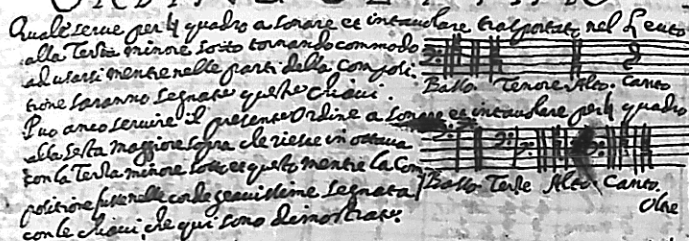 Quale serve per ♮ quadro a sonare et intavolare trasportato nel Leuto
alla Terza minore sotto tornando commodo
ad usarsi mentre nelle parti della Composi
tione saranno segnate queste Chiavi.
Basso. Tenore. Alto. Canto
Puo anco servire il presente Ordine a sonare et intavolare per ♮ quadro
alla sesta maggiore sopra che riesce in ottava
con la Terza minore sotto et questo mentre la Com
positione fusse nelle corde gravissime segnata
con le chiavi, che qui sono dimostrate.
Basso. Alto. Canto.
Oltre